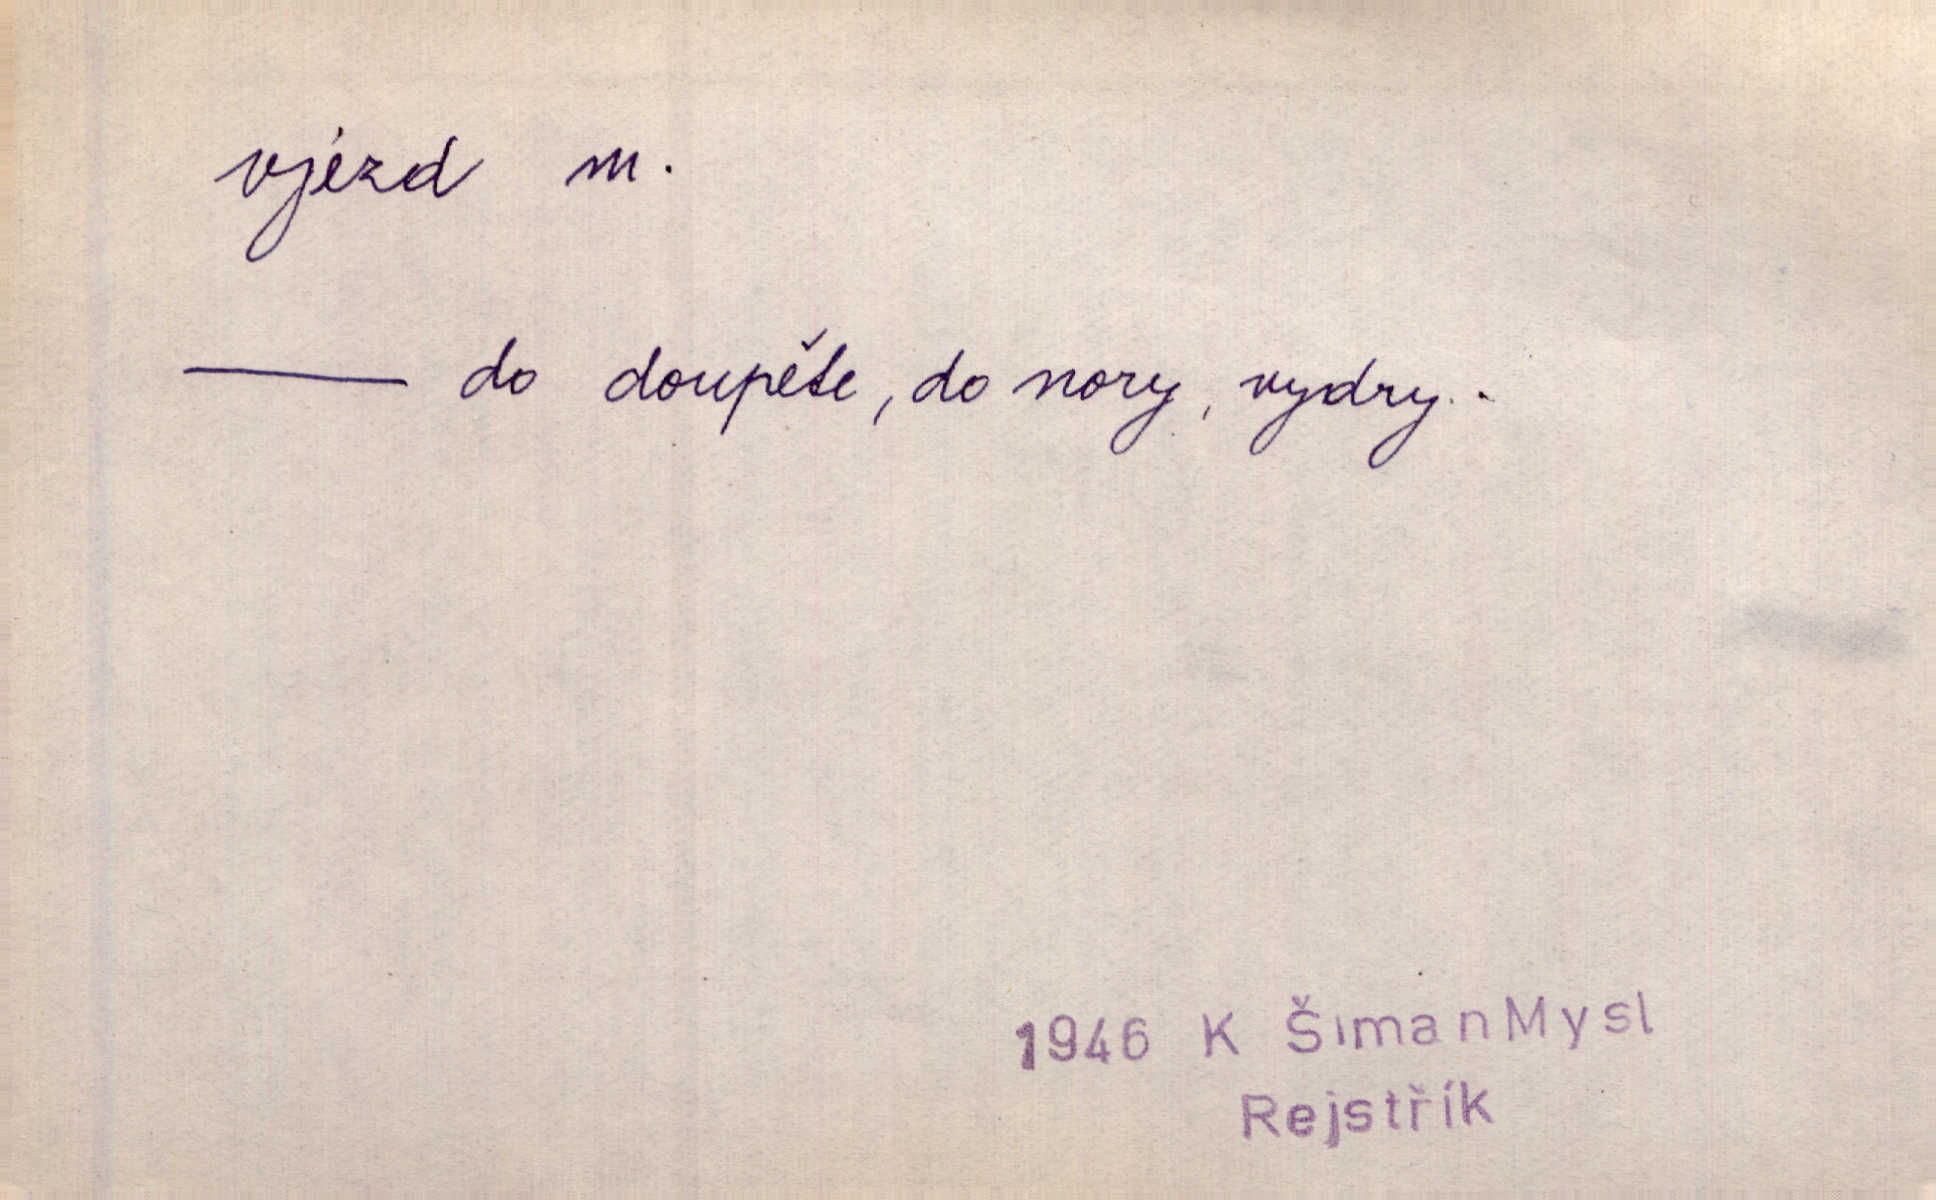 vjezd m.
—— do doupěte, do nory, vydry..
1946 K ŠimanMysl
Rejstřík